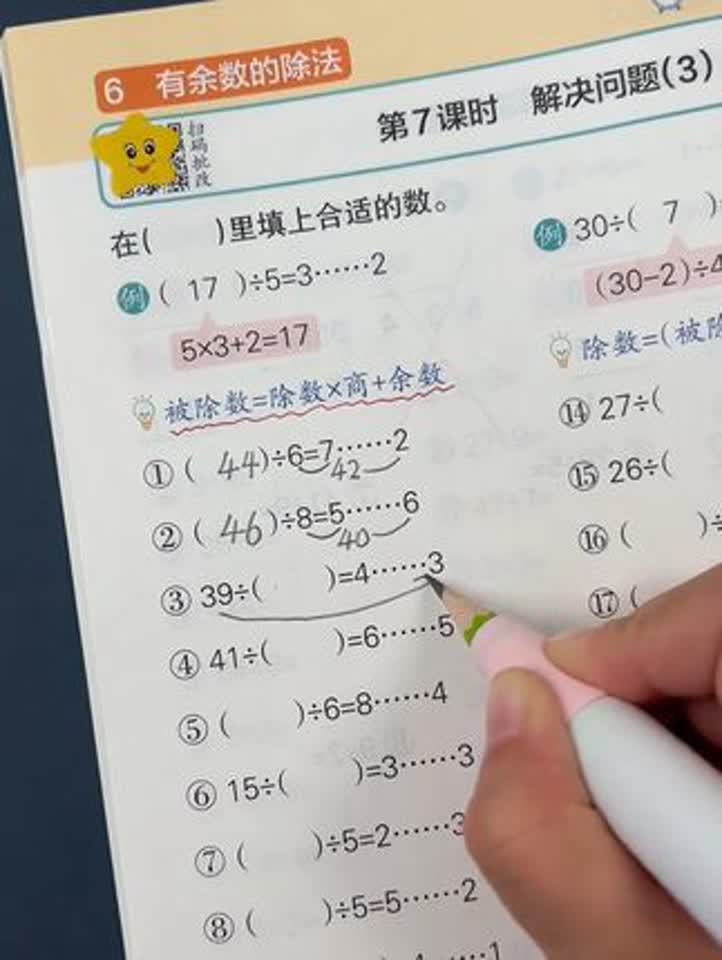 6 有余数的除法
第7课时 解决问题(3)
扫码批改
在( )里填上合适的数。
例 ( 17 )÷5=3……2
5×3+2=17
被除数=除数×商+余数
① ( 44 )÷6=7……2
42
② ( 46 )÷8=5……6
40
③ 39÷( )=4……3
④ 41÷( )=6……5
⑤ ( )÷6=8……4
⑥ 15÷( )=3……3
⑦ ( )÷5=2……3
⑧ ( )÷5=5……2
……1
例 30÷( 7 )
(30-2)÷4
除数=(被除
⑭ 27÷(
⑮ 26÷(
⑯ ( )÷
⑰ (